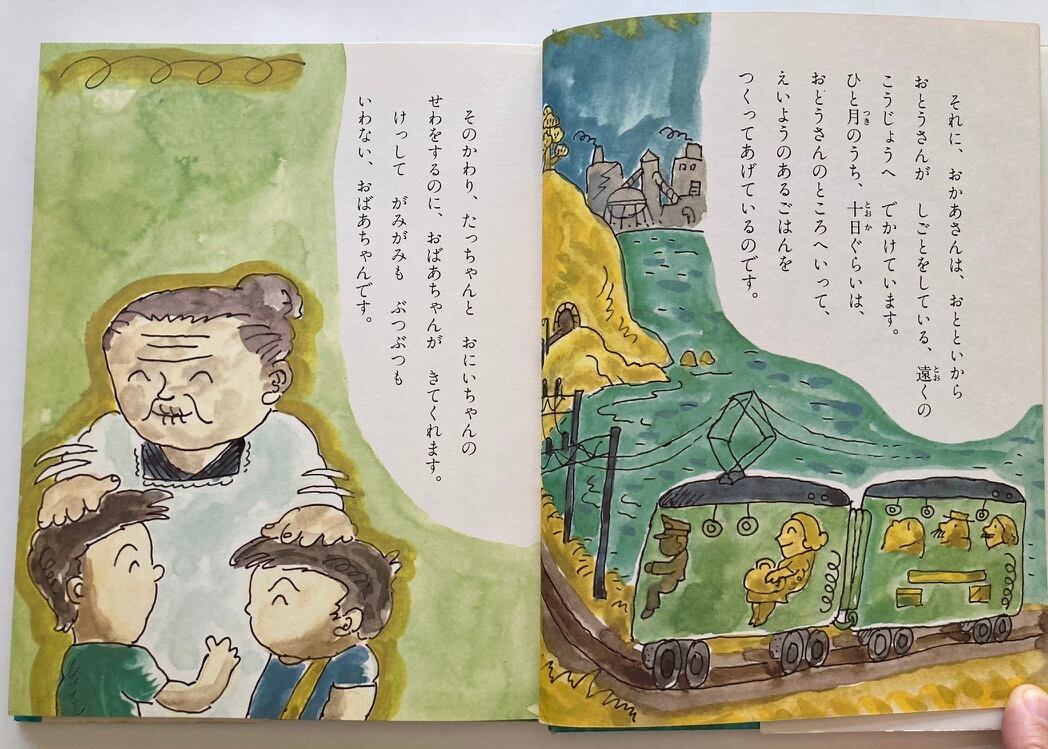 それに、おかあさんは、おとといから
おとうさんが　しごとをしている、遠くの
こうじょうへ　でかけています。
ひと月のうち、十日ぐらいは、
おとうさんのところへいって、
えいようのあるごはんを
つくってあげているのです。
そのかわり、たっちゃんと　おにいちゃんの
せわをするのに、おばあちゃんが　きてくれます。
けっして　がみがみも　ぶつぶつも
いわない、おばあちゃんです。